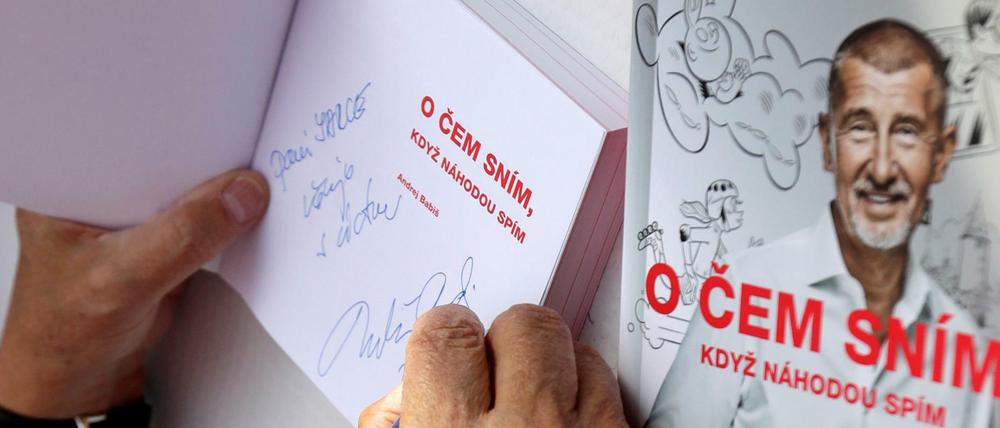 paní JARCE
s úctou
O ČEM SNÍM,
KDYŽ NÁHODOU SPÍM
Andrej Babiš
O ČEM SNÍM
KDYŽ NÁHODOU SPÍM